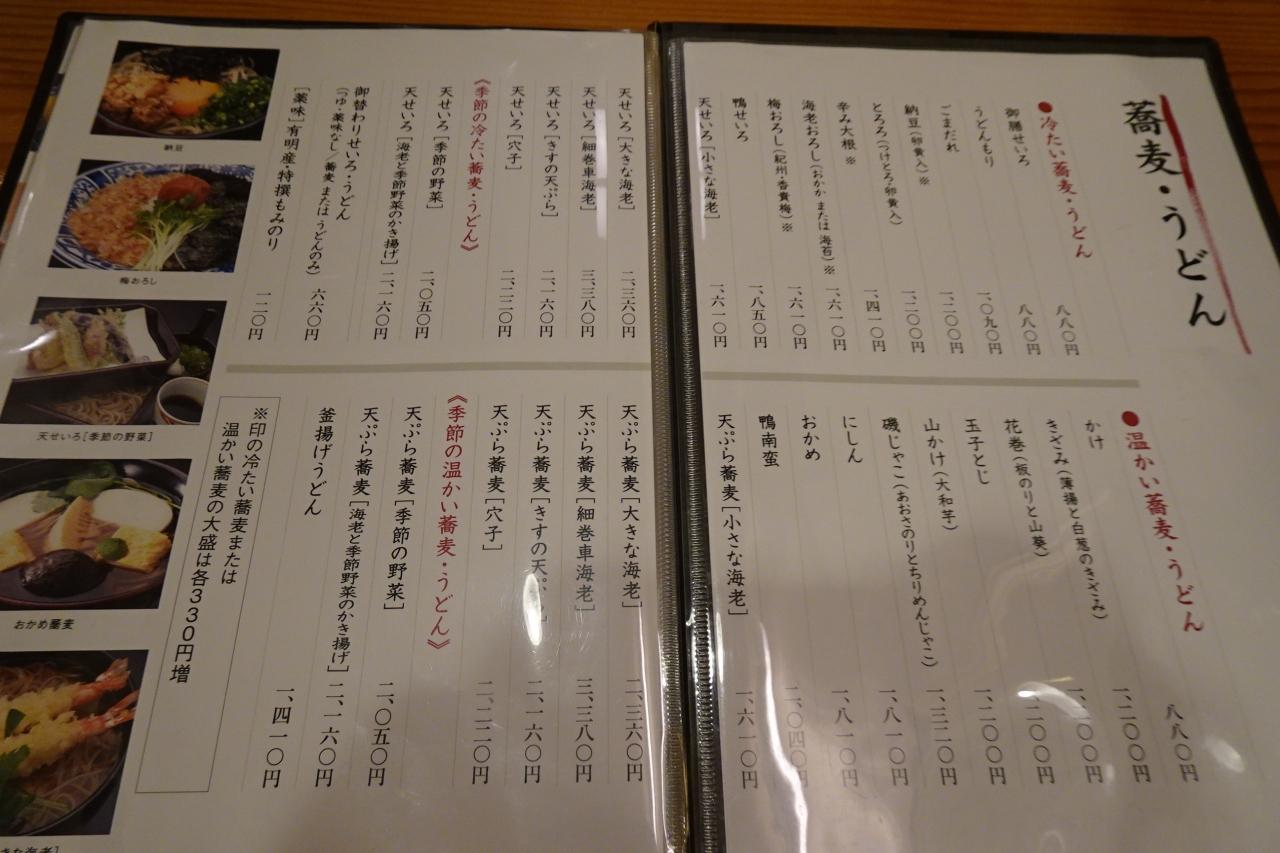 蕎麦・うどん
●冷たい蕎麦・うどん
御膳せいろ 八八〇円
うどんもり 八八〇円
ごまだれ 一、〇九〇円
納豆(卵黄入)※ 一、二〇〇円
とろろ(つけとろ・卵黄入) 一、二〇〇円
辛み大根※ 一、四一〇円
海老おろし(おかか または 海苔)※ 一、六一〇円
梅おろし(紀州・香貴梅)※ 一、六一〇円
鴨せいろ 一、八五〇円
天せいろ[小さな海老] 一、六一〇円
●温かい蕎麦・うどん
かけ 八八〇円
きざみ(薄揚と白葱のきざみ) 一、二〇〇円
花巻(板のりと山葵) 一、二〇〇円
玉子とじ 一、二〇〇円
山かけ(大和芋) 一、二〇〇円
磯じゃこ(あおさのりとちりめんじゃこ) 一、三二〇円
にしん 一、八一〇円
おかめ 一、八一〇円
鴨南蛮 二、〇四〇円
天ぷら蕎麦[小さな海老] 一、六一〇円
天せいろ[大きな海老] 二、三六〇円
天せいろ[細巻車海老] 三、三八〇円
天せいろ[きすの天ぷら] 二、一六〇円
天せいろ[穴子] 二、二二〇円
《季節の冷たい蕎麦・うどん》
天せいろ[季節の野菜] 二、〇五〇円
天せいろ[海老と季節野菜のかき揚げ] 二、一六〇円
御替わりせいろ・うどん
(つゆ・薬味なし/蕎麦 または うどんのみ) 六六〇円
[薬味]有明産特撰もみのり 一二〇円
天ぷら蕎麦[大きな海老] 二、三六〇円
天ぷら蕎麦[細巻車海老] 三、三八〇円
天ぷら蕎麦[きすの天ぷ 二、一六〇円
天ぷら蕎麦[穴子] 二、二二〇円
《季節の温かい蕎麦・うどん》
天ぷら蕎麦[季節の野菜] 二、〇五〇円
天ぷら蕎麦[海老と季節野菜のかき揚げ] 二、一六〇円
釜揚げうどん 一、四一〇円
※印の冷たい蕎麦または
温かい蕎麦の大盛は各330円増
納豆
梅おろし
天せいろ[季節の野菜]
おかめ蕎麦
きな海老]